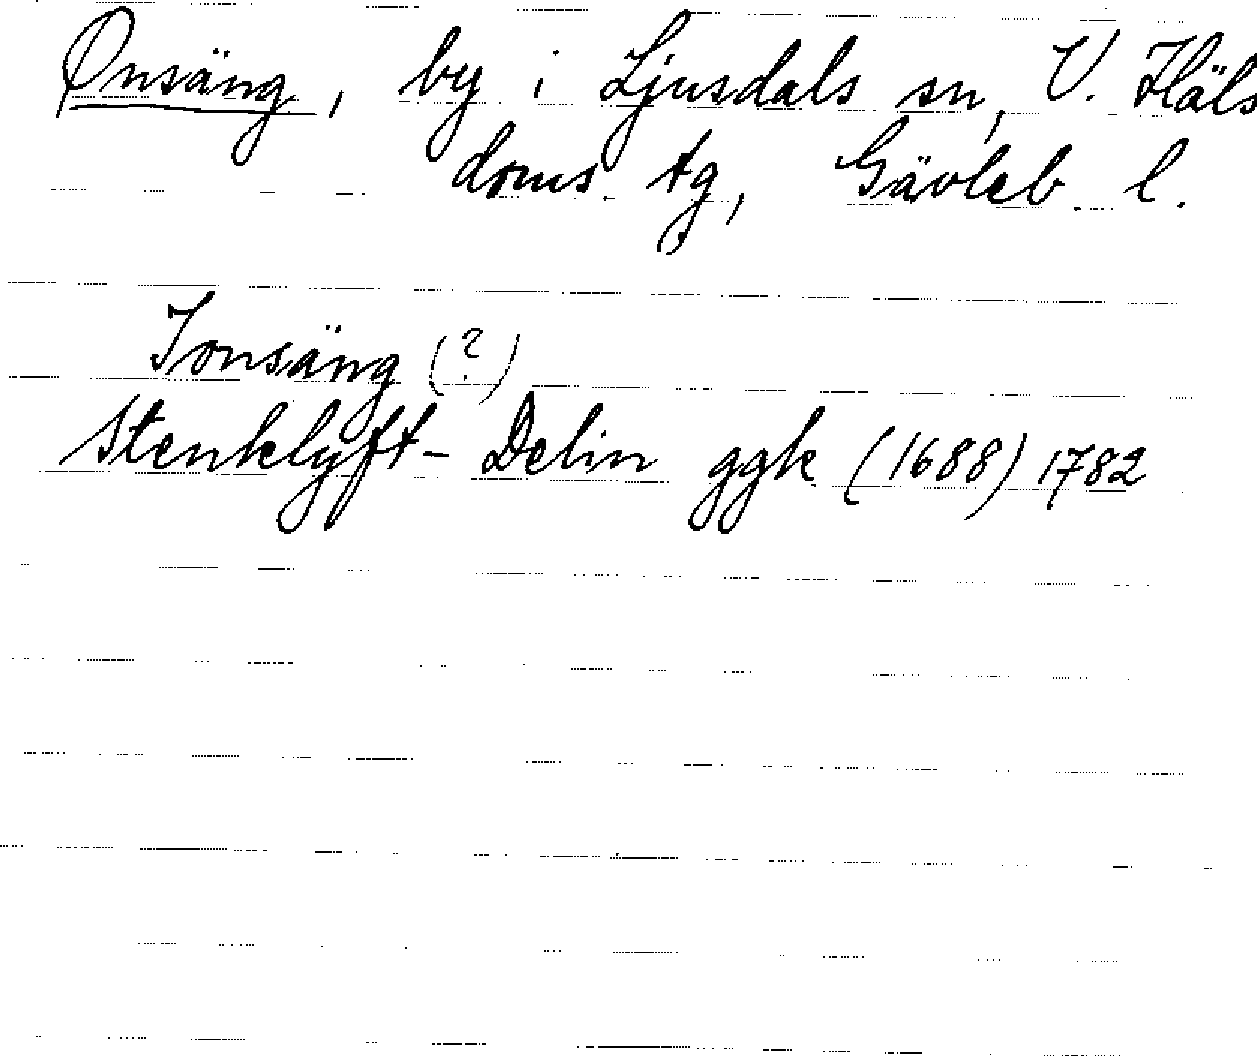 Onsäng, by i Ljusdals sn, V. Häls
doms. tg, Gävleb. l.
Jonsäng (?)
Stenklyft- Delin ggk (1688) 1782